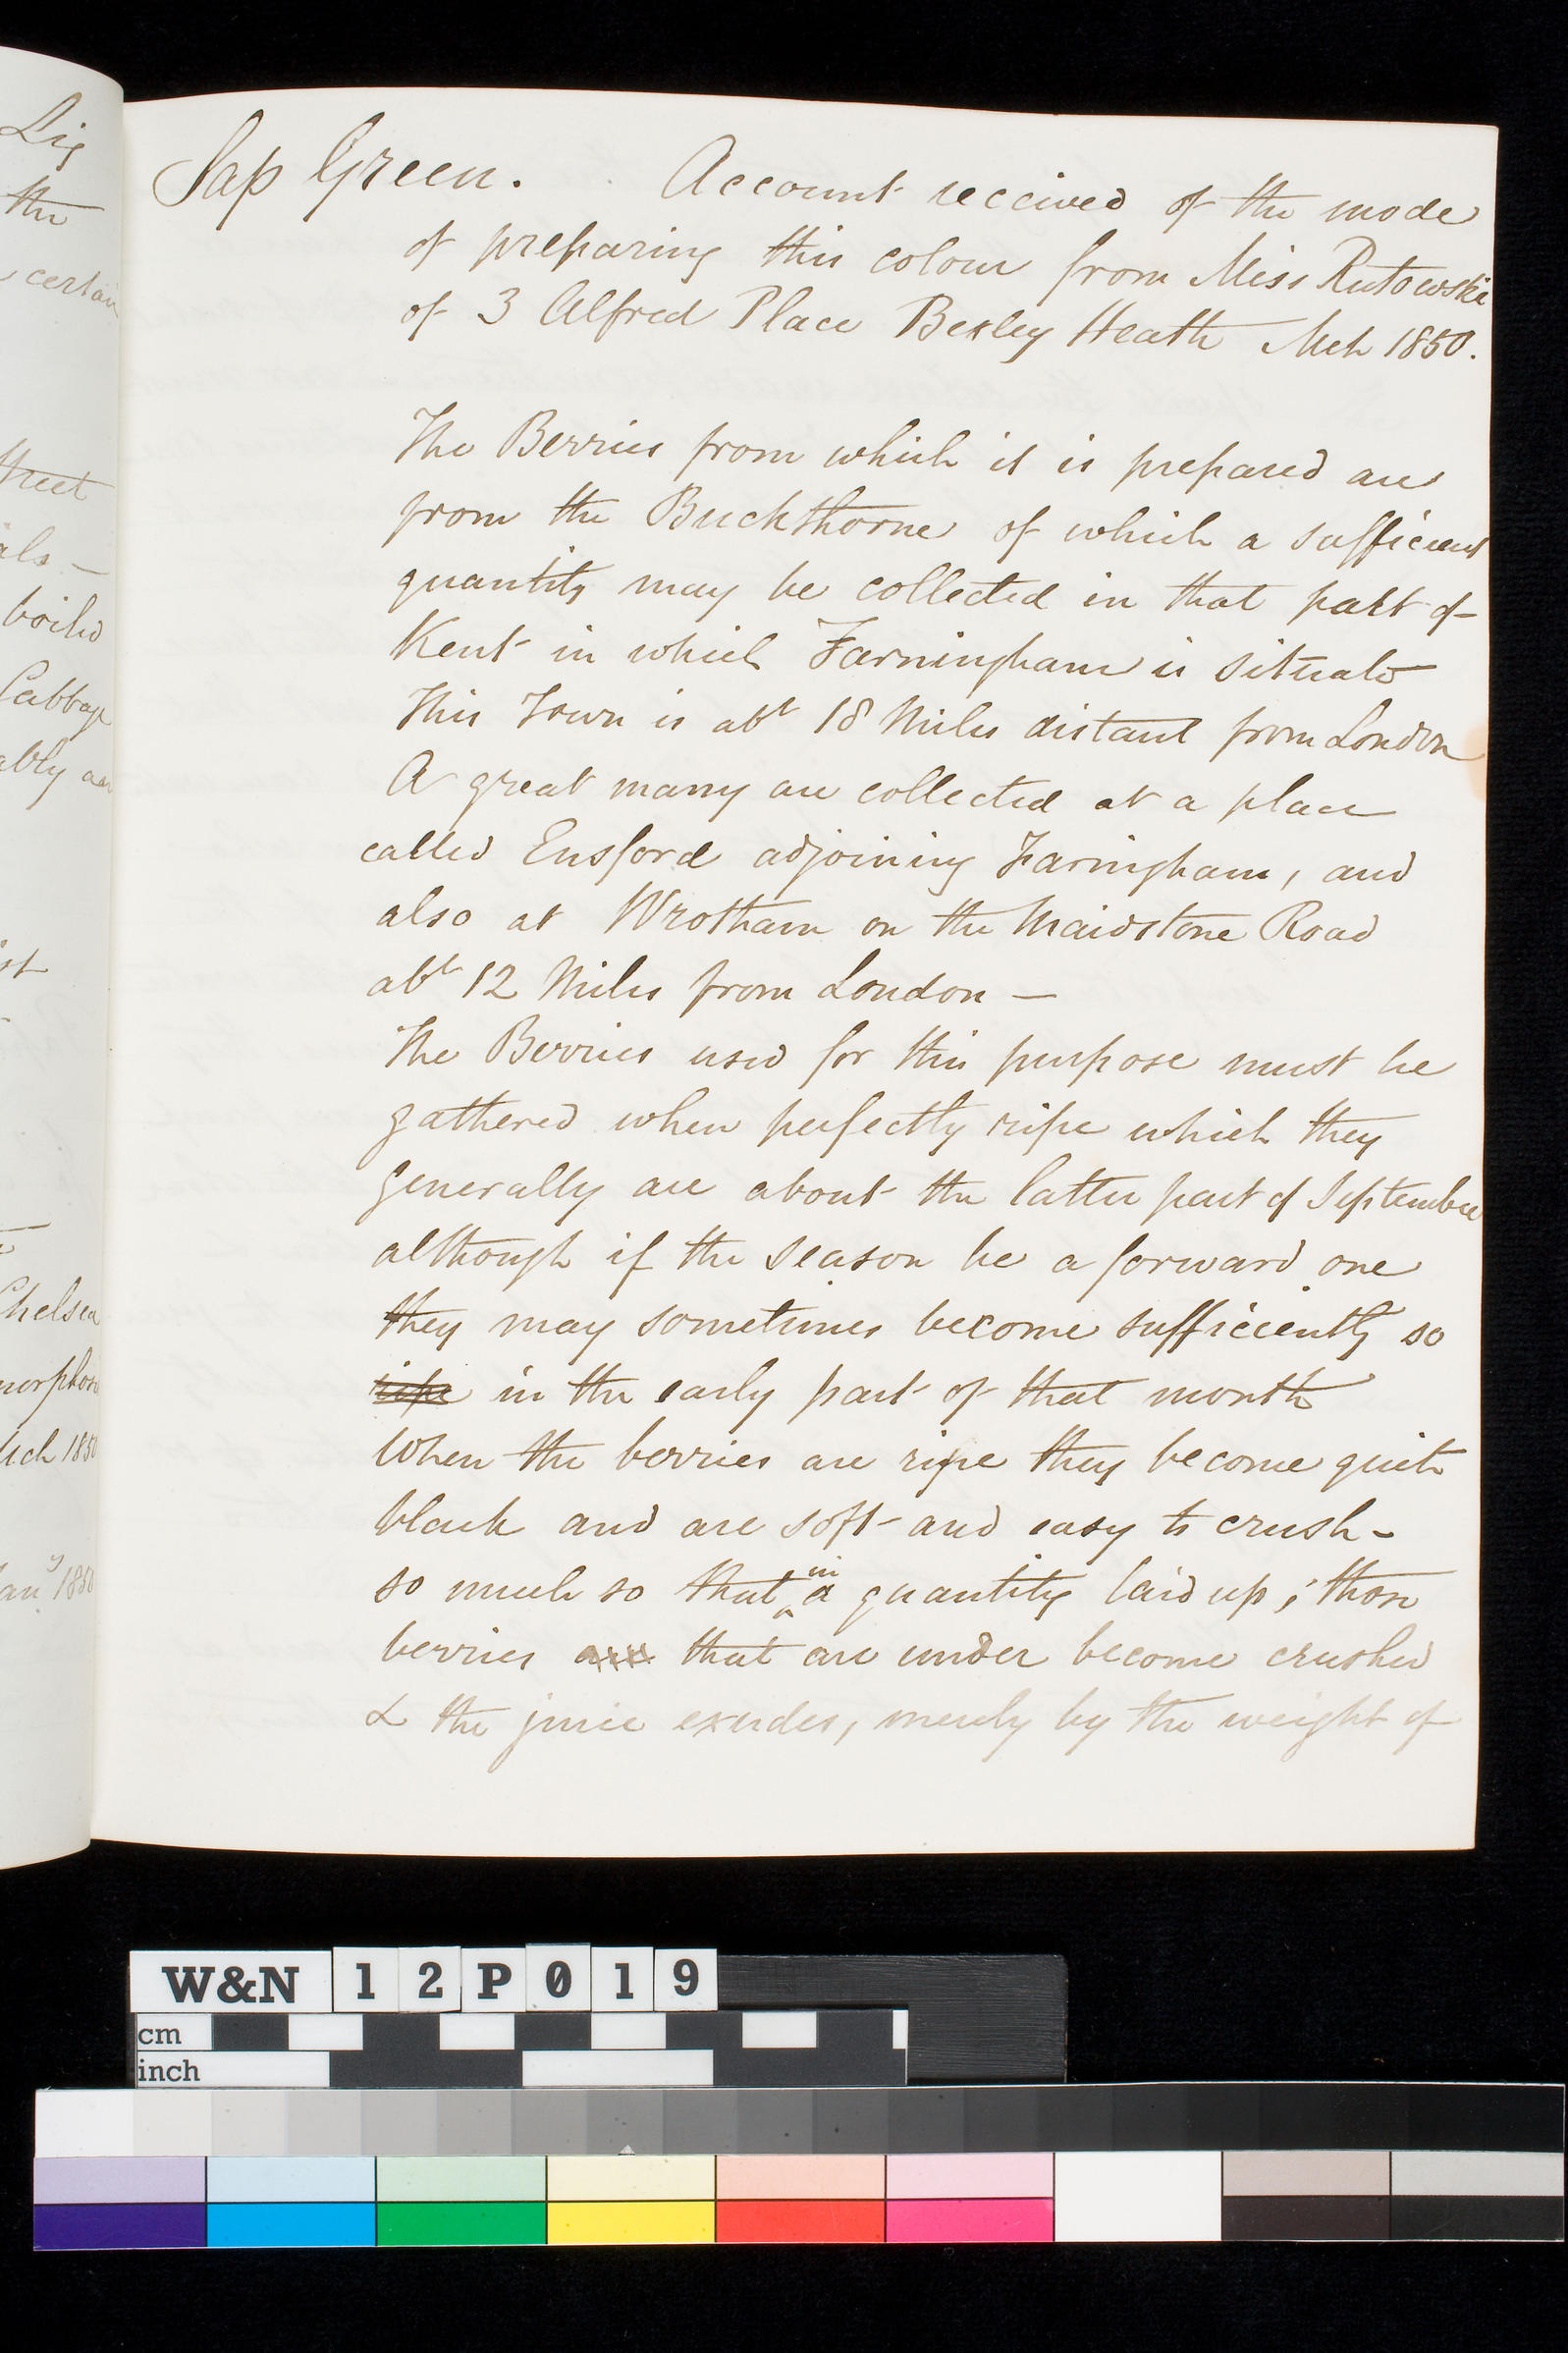 Lig
the
certain
Street
als —
boiled
Cabbage
ably as
ist
Chelsea
Mch 1850
Jany 1850
Sap Green. Account received of the mode
of preparing this colour from Miss Rutowski
of 3 Alfred Place Bexley Heath Mch 1850.
The Berries from which it is prepared are
from the Buckthorne of which a sufficient
quantity may be collected in that part of
Kent in which Farningham is situate
This Town is abt 18 Miles distant from London
A great many are collected at a place
called Ensford adjoining Faringham, and
also at Wrotham on the Maidstone Road
abt 12 Miles from London —
The Berries used for this purpose must be
gathered when perfectly ripe which they
generally are about the latter part of September
although if the season be a forward one
they may sometimes become sufficiently so
ripe in the early part of that month
When the berries are ripe they become quite
black and are soft and easy to crush -
so much so that in a quantity laid up ; those
berries are that are under become crushed
& the juice exudes, merely by the weight of
W&N 12P019
cm
inch